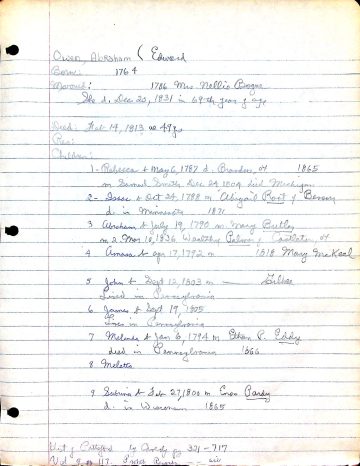 Owen, Abraham ( Edward
Born: 1764
Married: 1786 Mrs Nellie
She d. Dec 20, 1831 in 69th year of age
Died: Feb 14, 1813 ae 49y
Res:
Children:
1- Rebecca b May 6, 1787 d. Brandon, Vt 1865
m Samuel Smith, Dec 24 1804 died Michigan
2- Isaac b Oct 24, 1788 m Abigail Root of Benson
d. in Minnesota 1871
3 Abraham b July 19, 1790 m. Mary
m 2. Mar 10, 1836 Palmer of Castleton, Vt
4 Amasa b 17, 1792 m 1818 Mary
5 John b Sept 12, 1803 m —
Lived in Pennsylvania
6 James b Sept 19, 1805
Lives in Pennsylvania
7 Melinda b Jan 6, 1794 m Ethan P. Eddy
died in Pennsylvania 1866
8
9 Sabrina b Feb 27, 1800 m. Enos Pardy
d. in 1865
Hist of by 321-717